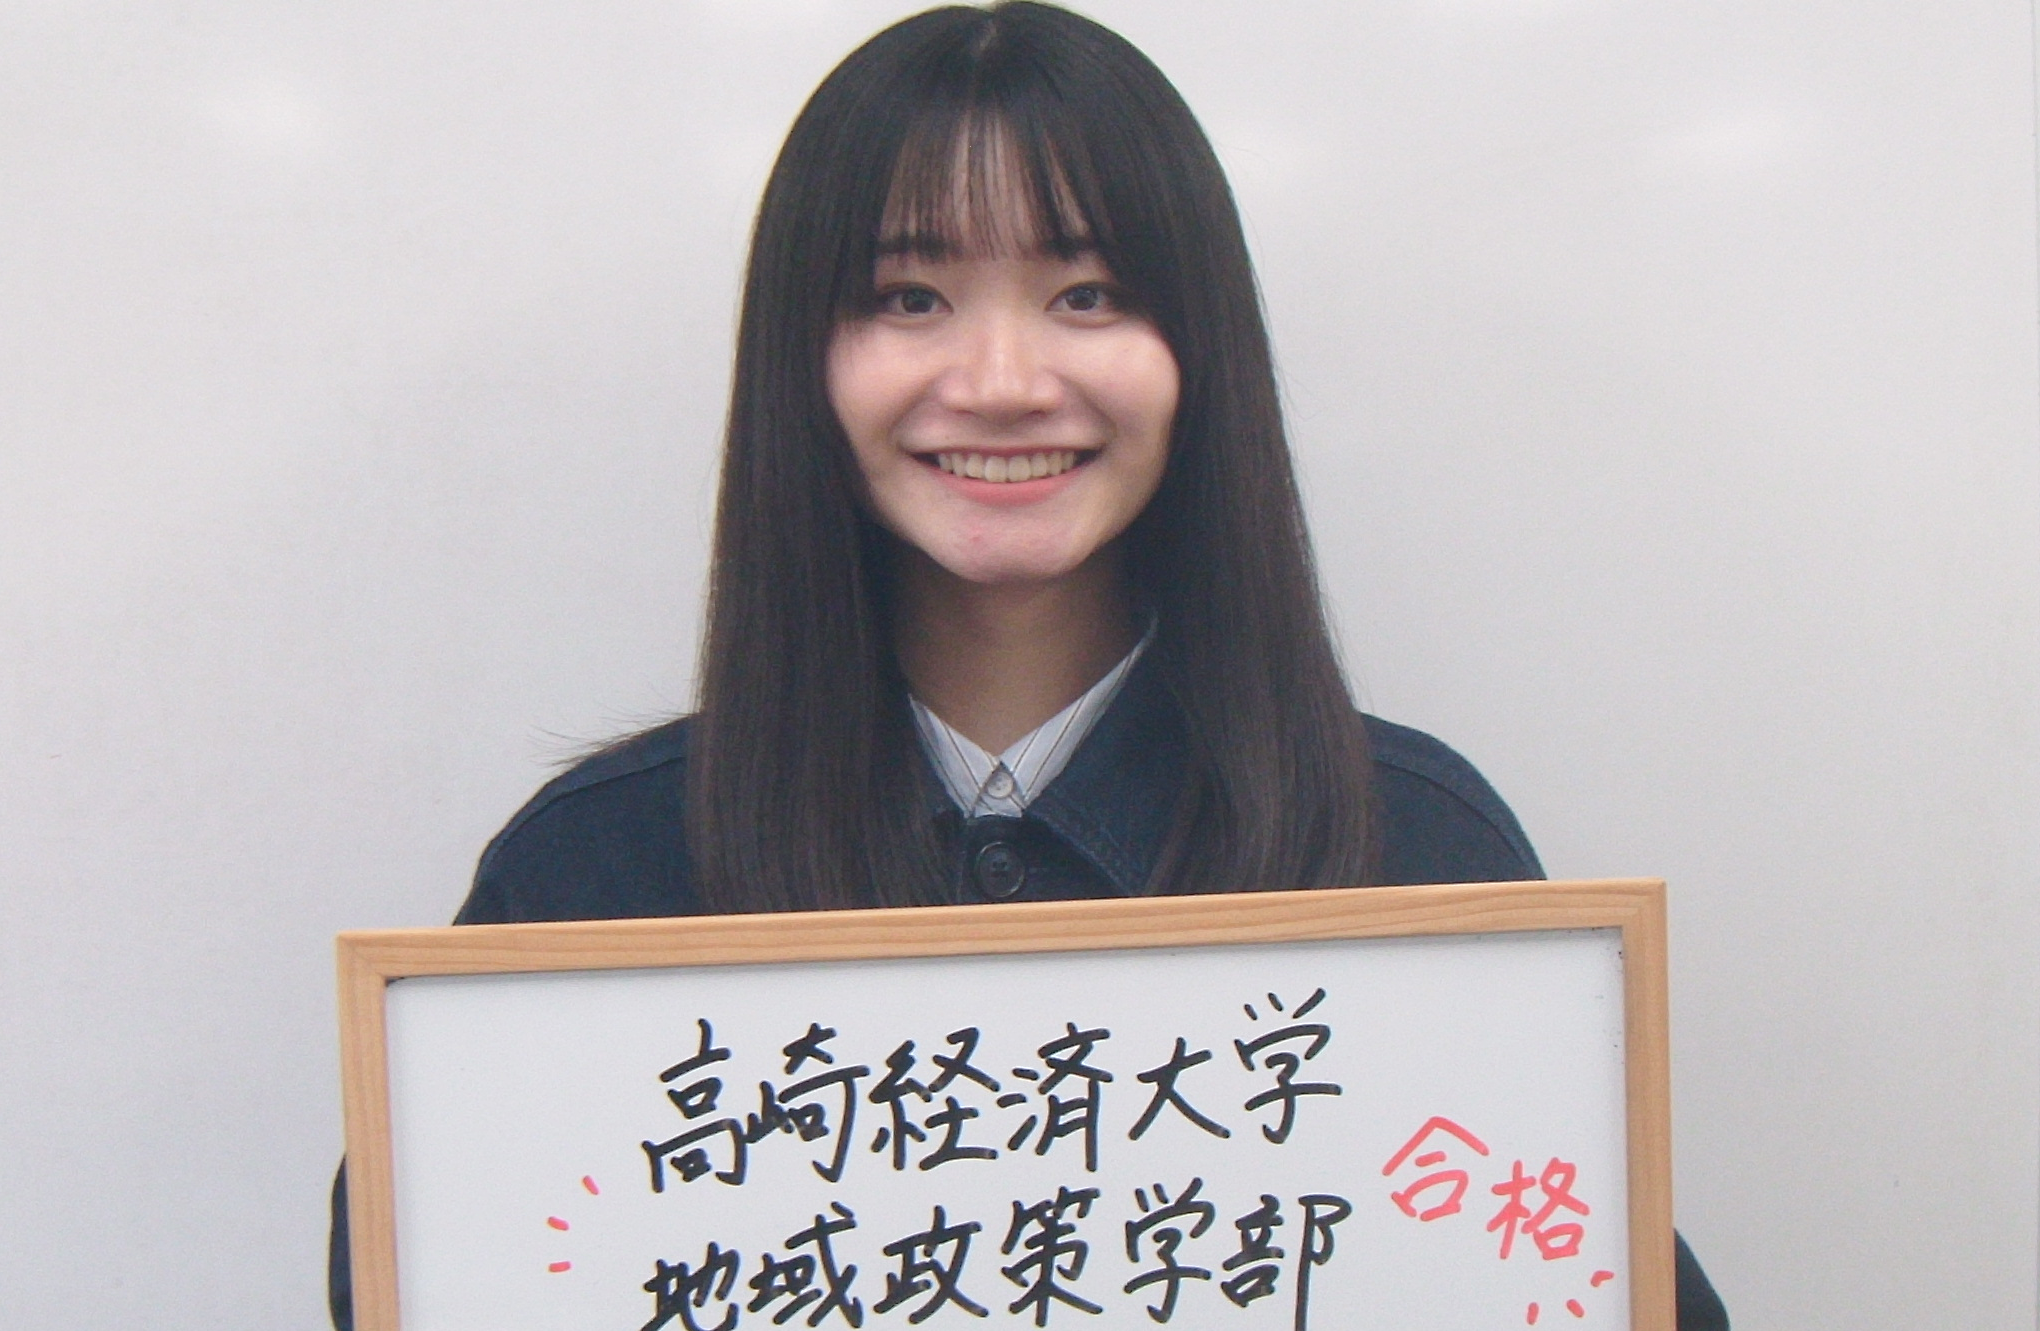 高崎経済大学
地域政策学部
合格